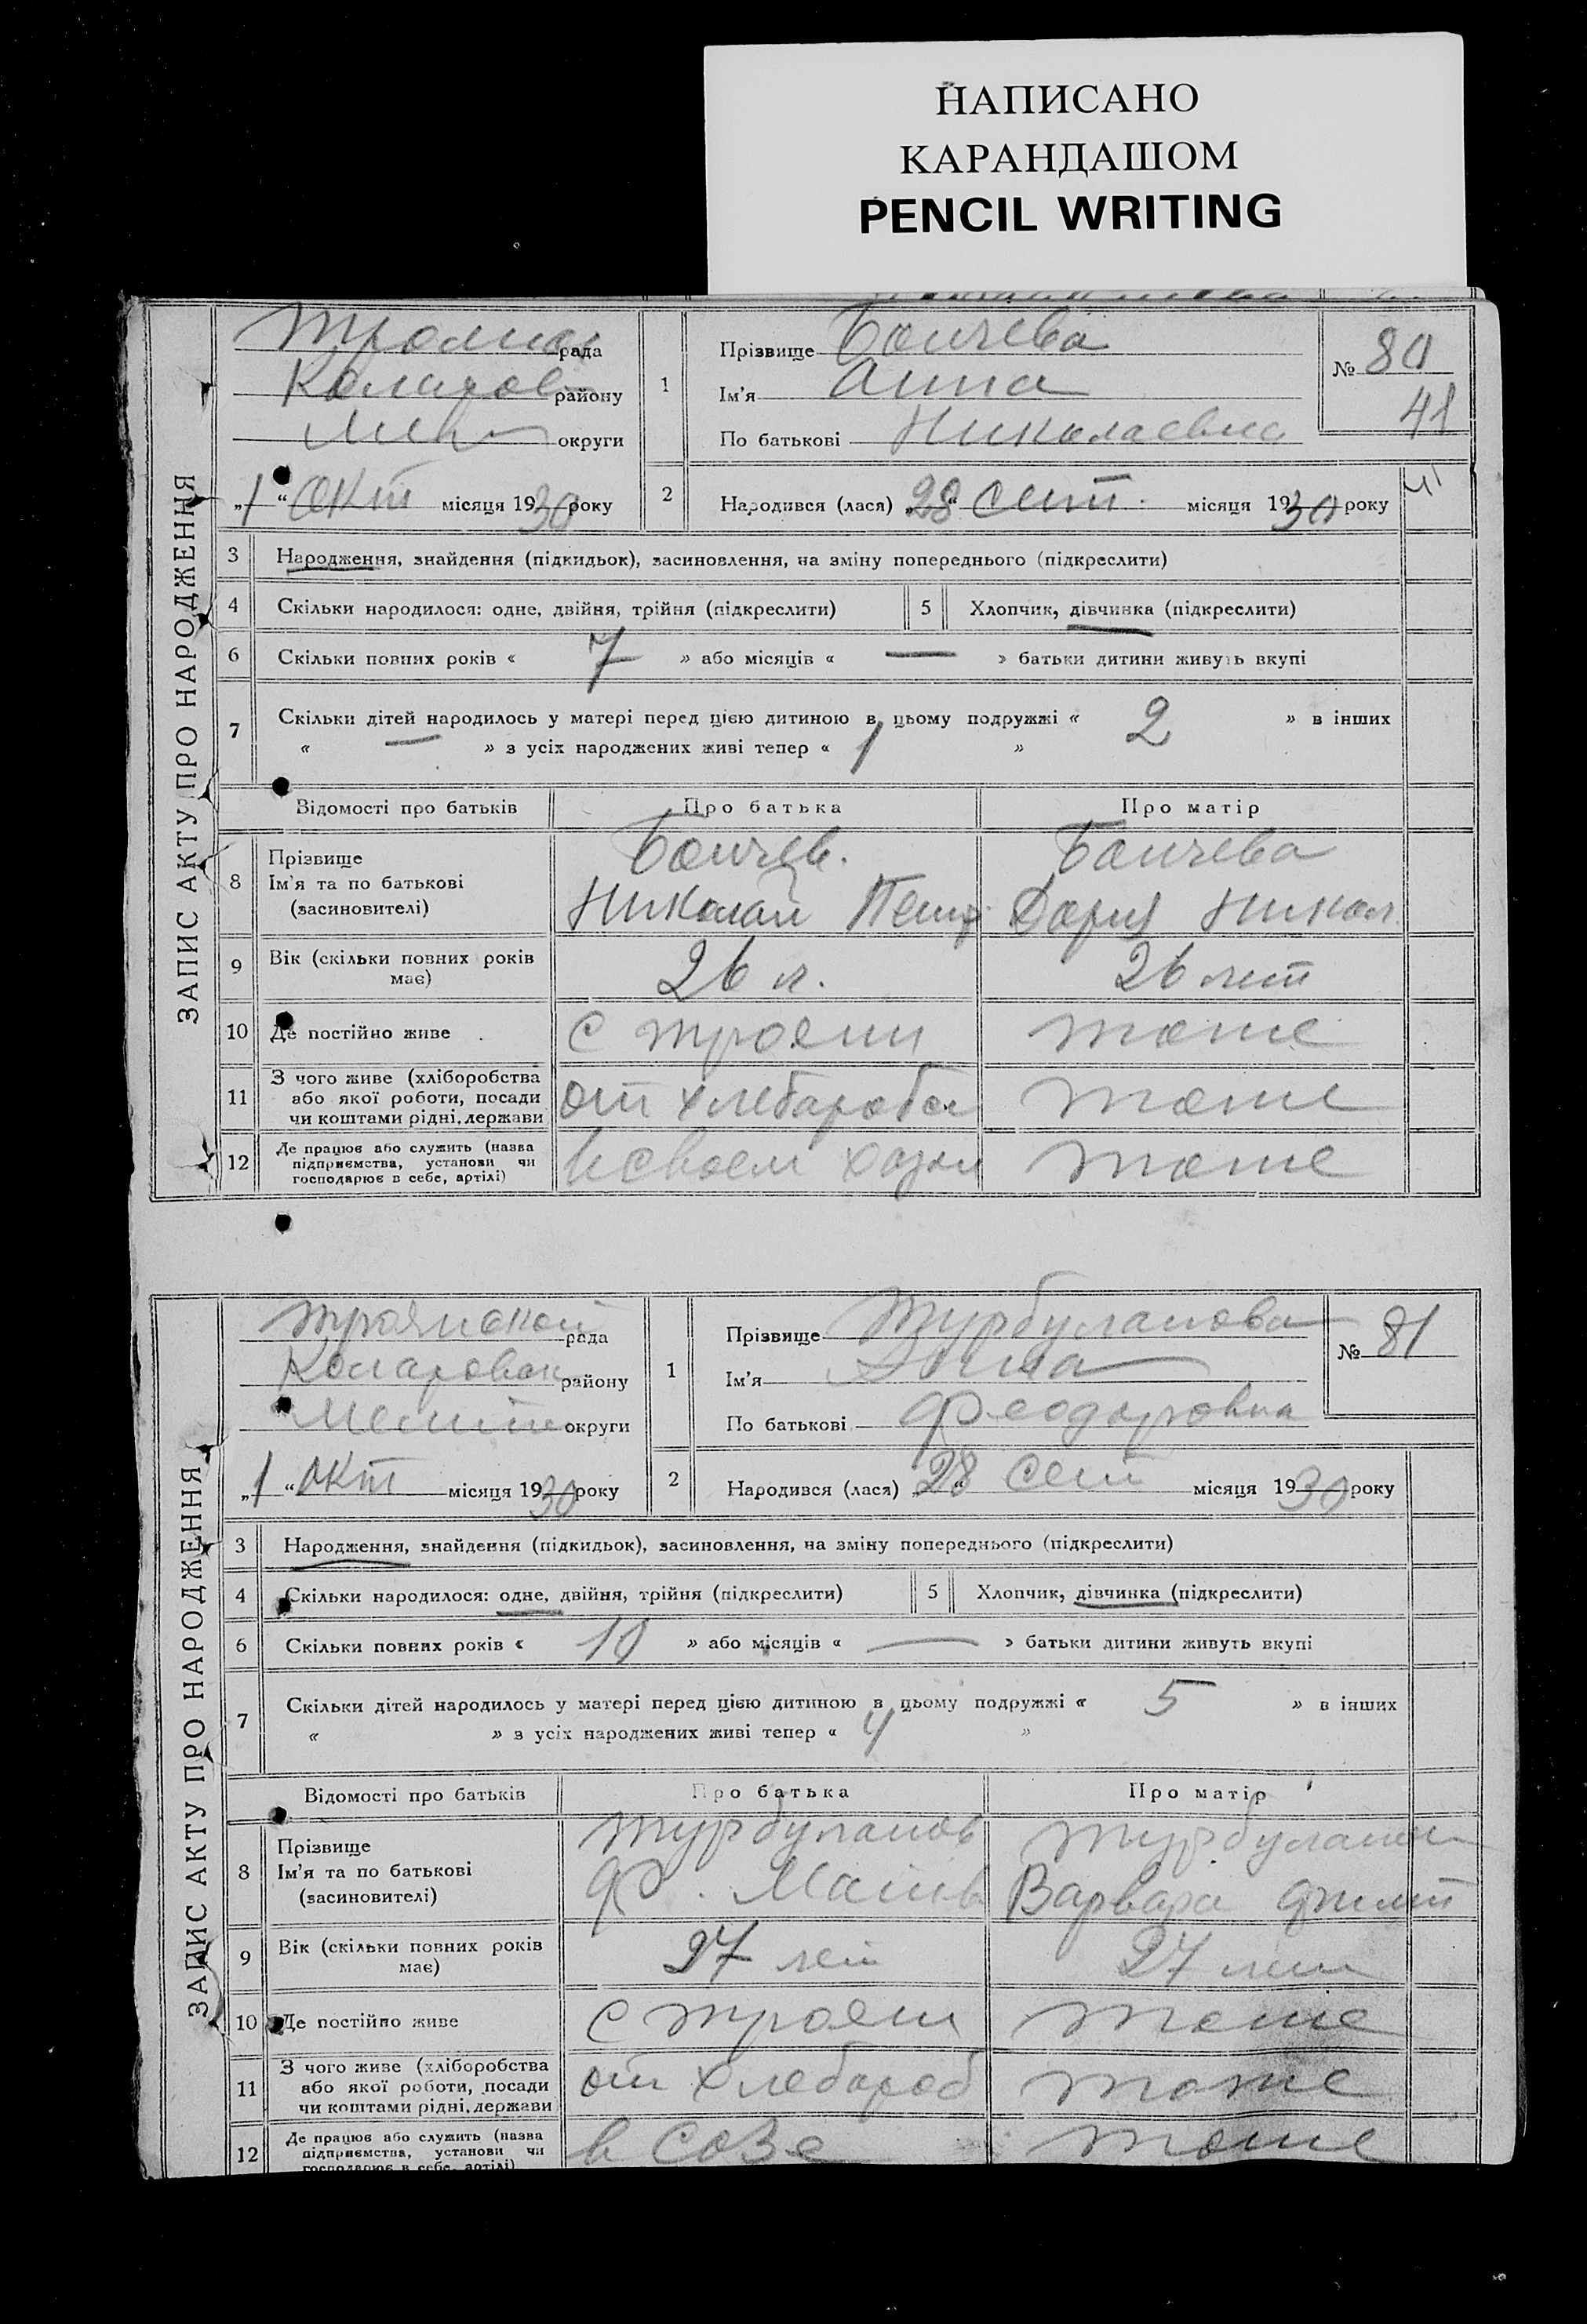 НАПИСАНО
КАРАНДАШОМ
PENCIL WRITING
ЗАПИС АКТУ ПРО НАРОДЖЕННЯ
рада
району
округи
1
Прізвище
Ім'я Анна
По батькові Николаевна
№ 80
41
„1“ окт місяця 1930 року
2
Народився (лася) „28“ сент. місяця 1930 року
3 Народження, знайдення (підкидьок), засиновлення, на зміну попереднього (підкреслити)
4 Скільки народилося: одне, двійня, трійня (підкреслити)
5 Хлопчик, дівчинка (підкреслити)
6 Скільки повних років « 7 » або місяців « — » батьки дитини живуть вкупі
7 Скільки дітей народилось у матері перед цією дитиною в цьому подружжі « 2 » в інших
« — » з усіх народжених живі тепер « 1 »
Відомості про батьків
Про батька
Про матір
8 Прізвище
Ім'я та по батькові
(засиновителі)
Николай Петр
Дария Никол
9 Вік (скільки повних років
має)
26 л.
26 лет
10 Де постійно живе
с Трояни
тоже
11 З чого живе (хліборобства
або якої роботи, посади
чи коштами рідні, держави
от хлебароб
тоже
12 Де працює або служить (назва
підприємства, установи чи
господарює в себе, артілі)
в своем хозя
тоже
ЗАПИС АКТУ ПРО НАРОДЖЕННЯ
Троянской рада
району
округи
1
Прізвище Турбуланова
Ім'я
По батькові Феодоровна
№ 81
„1“ окт місяця 1930 року
2
Народився (лася) „28“ сент місяця 1930 року
3 Народження, знайдення (підкидьок), засиновлення, на зміну попереднього (підкреслити)
4 Скільки народилося: одне, двійня, трійня (підкреслити)
5 Хлопчик, дівчинка (підкреслити)
6 Скільки повних років « 10 » або місяців « — » батьки дитини живуть вкупі
7 Скільки дітей народилось у матері перед цією дитиною в цьому подружжі « 5 » в інших
« » з усіх народжених живі тепер « 4 »
Відомості про батьків
Про батька
Про матір
8 Прізвище
Ім'я та по батькові
(засиновителі)
Турбуланов
Ф.
Турбуланов
Варвара Филип
9 Вік (скільки повних років
має)
27 лет
27 лет
10 Де постійно живе
с Трояни
тоже
11 З чого живе (хліборобства
або якої роботи, посади
чи коштами рідні, держави
от хлебороб
тоже
12 Де працює або служить (назва
підприємства, установи чи
господарює в себе, артілі)
в Созе
тоже